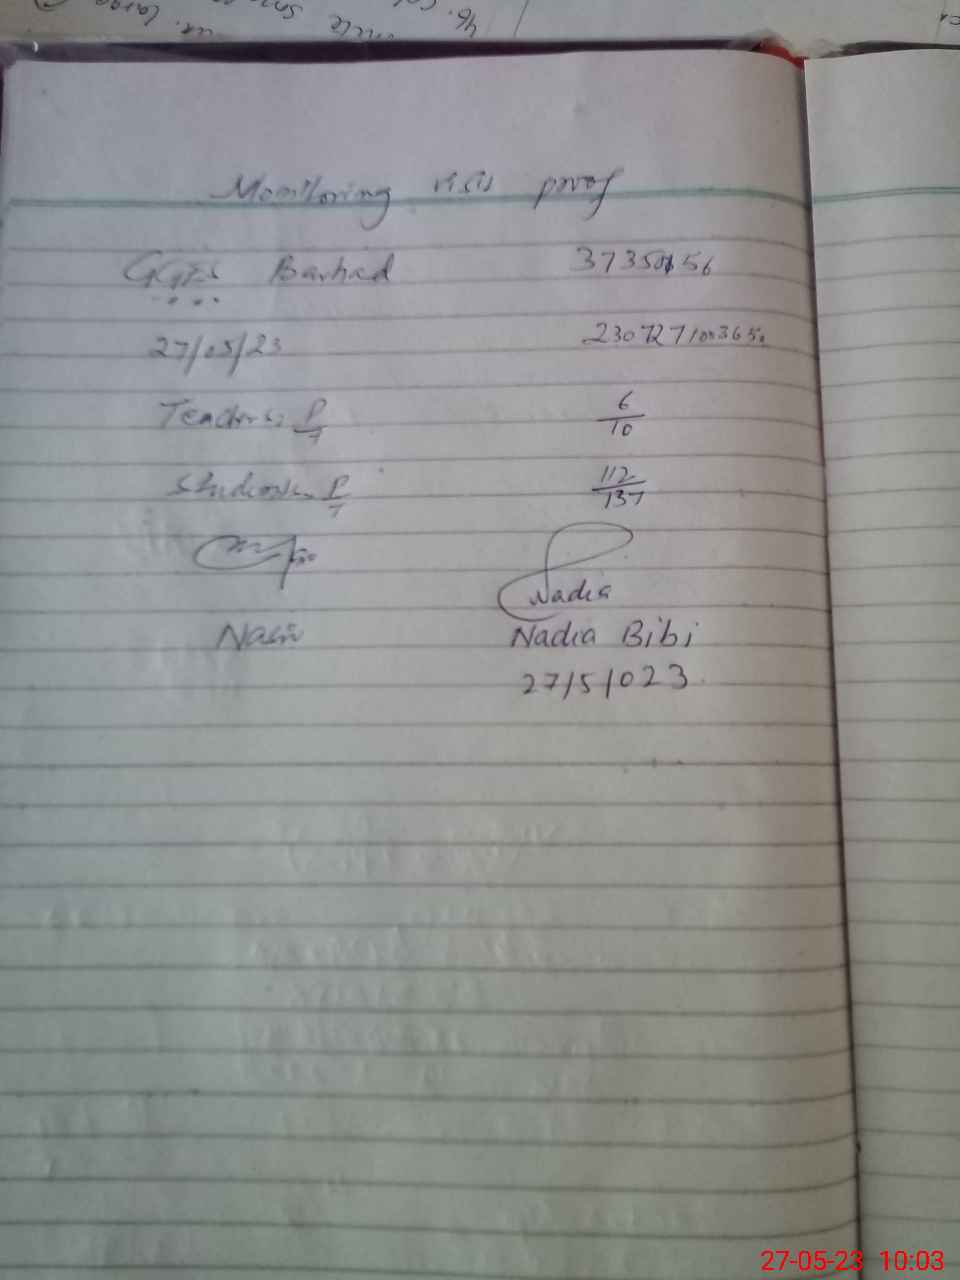 Monitoring visit proof
GGES Barhad 37350156
27/05/23
Teachers P/T 6/10
Students P/T 112/137
Nadia
Nasir Nadia Bibi
27/5/023
27-05-23 10:03